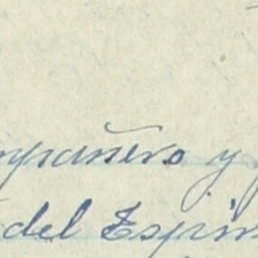 mpañero y
del Espin